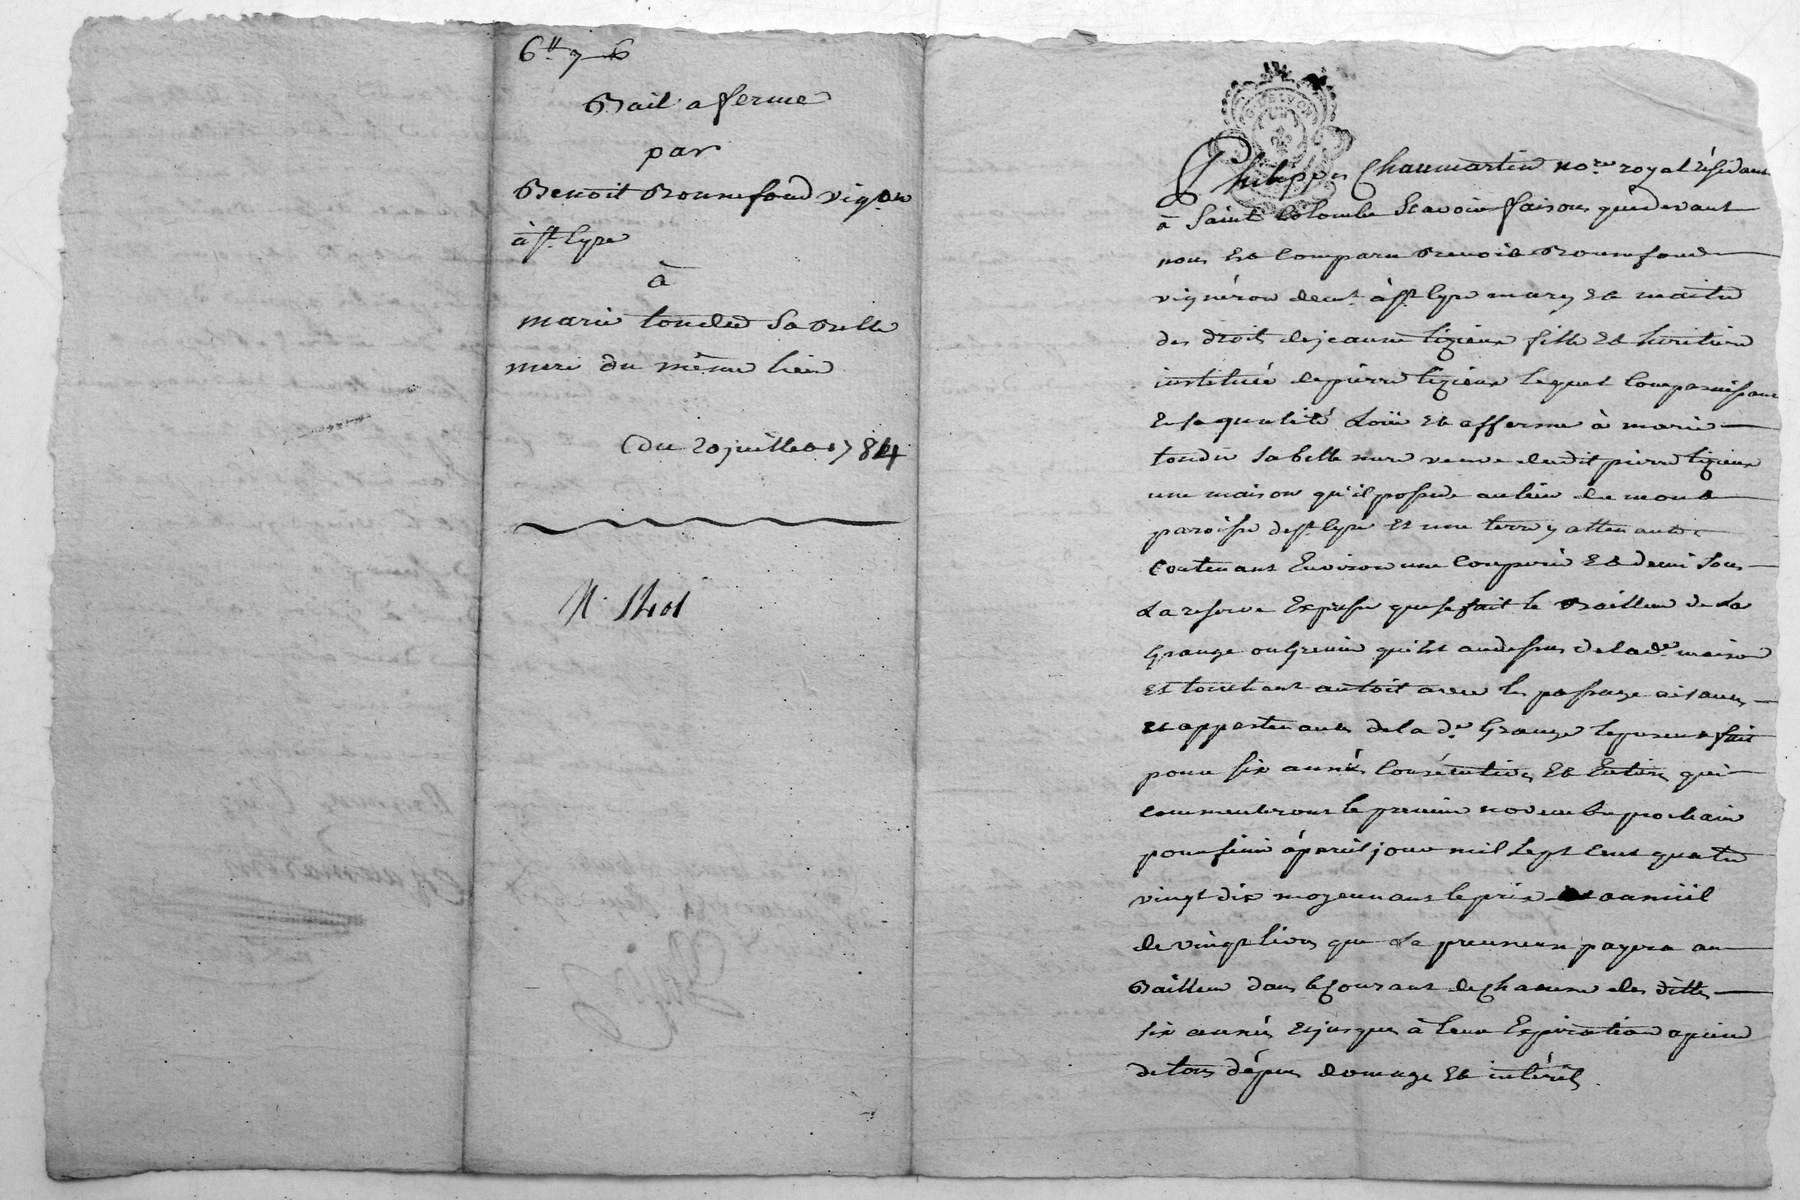 6tt 7 6
Bail a ferme
par
Benoit Bonnefond vigon
à st Cyre
à
marie tondu Sa belle
mere du même lieu
Du 20 juillet 1784
GEN DE LYON
Philippes Chaumartin nore royal résidant
à Sainte Colombe Scavoir faisons que devant
nous Est Comparu Benoit Bonnefond
vignéron demt à st Cyre mary Et maitre
des droits de jeanne lizieux fille Et héritière
instituée de pierre lizieux lequel Comparaissant
En sa qualité Loüe Et afferme à marie
tondu sa belle mere veuve dudit pierre lizieux
une maison qu'il possede au lieu de mont
paroisse de st Cyre Et une terre y attenante
Contenant Environ une Couperée Et demi Sous
La reserve Expresse que se fait le Bailleur de La
Grange ou Grenier qui Est au dessus de la de maison
Et touchant au toit avec les passage aisances
Et appartenances de la de Grange le present fait
pour six années Consécutives Et Entieres qui
commenceront le premier novembre prochain
pour finir à pareil jour mil sept Cent quatre
vingt dix moyennant le prix annüil
de vingt livres que La preneuse payera au
Bailleur dans le Courant de Chacune des dittes
six années Et jusques à leur Expiration a peine
de tous dépens domages Et intérêts.